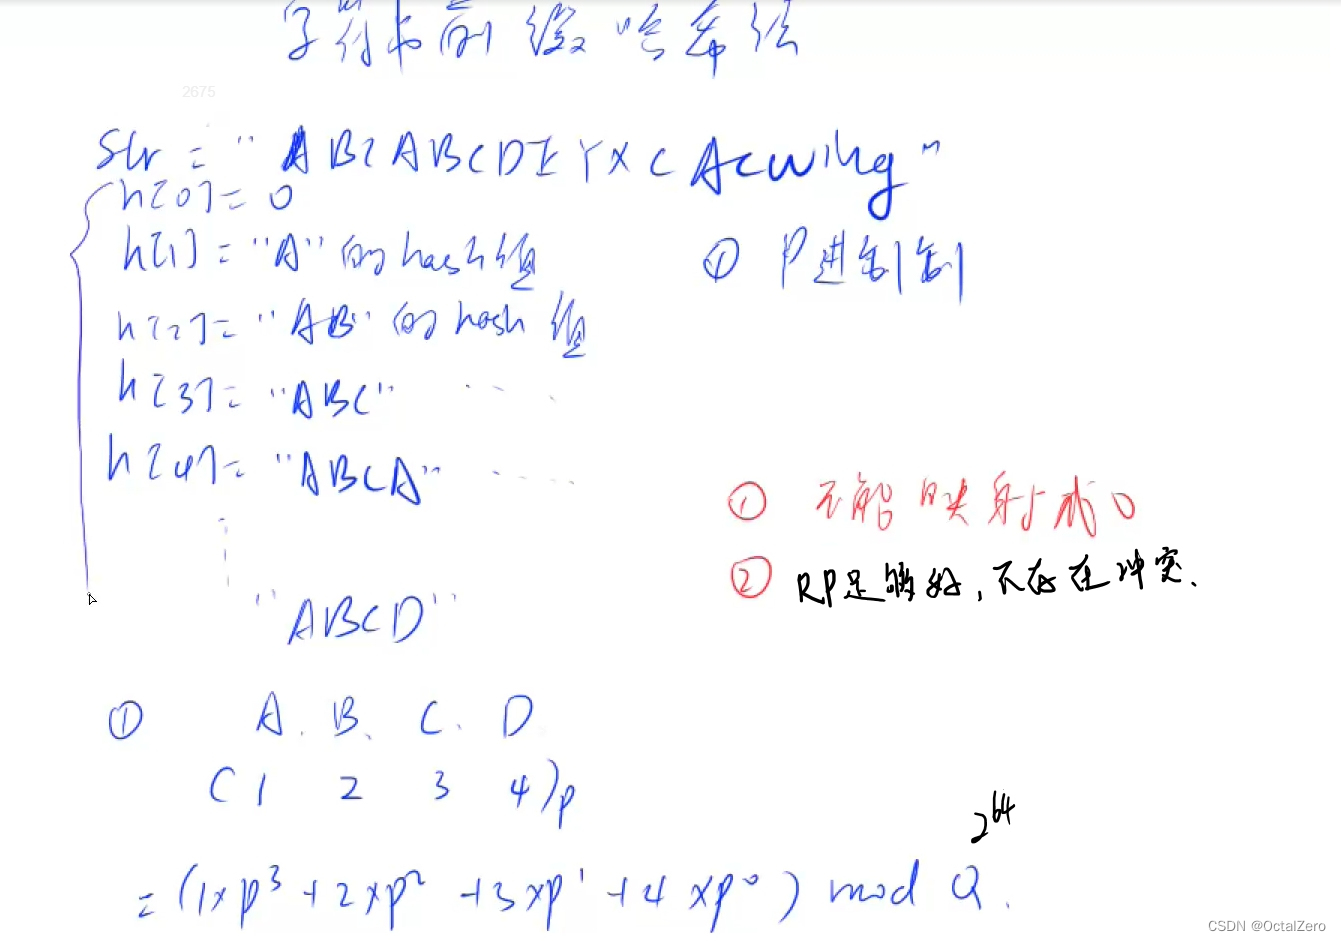 字符串前缀哈希法
2675
Str = "ABCABCDEYXCAcwing"
h[0] = 0
h[1] = "A" 的 hash 值
① P进制制
h[2] = "AB" 的 hash 值
h[3] = "ABC" ...
h[4] = "ABCA" .....
① 不能映射成0
② RP足够好,不存在冲突.
"ABCD"
① A. B. C. D
(1 2 3 4)p
2^64
= (1×p^3 + 2×p^2 + 3×p^1 + 4×p^0) mod Q.
CSDN @OctalZero